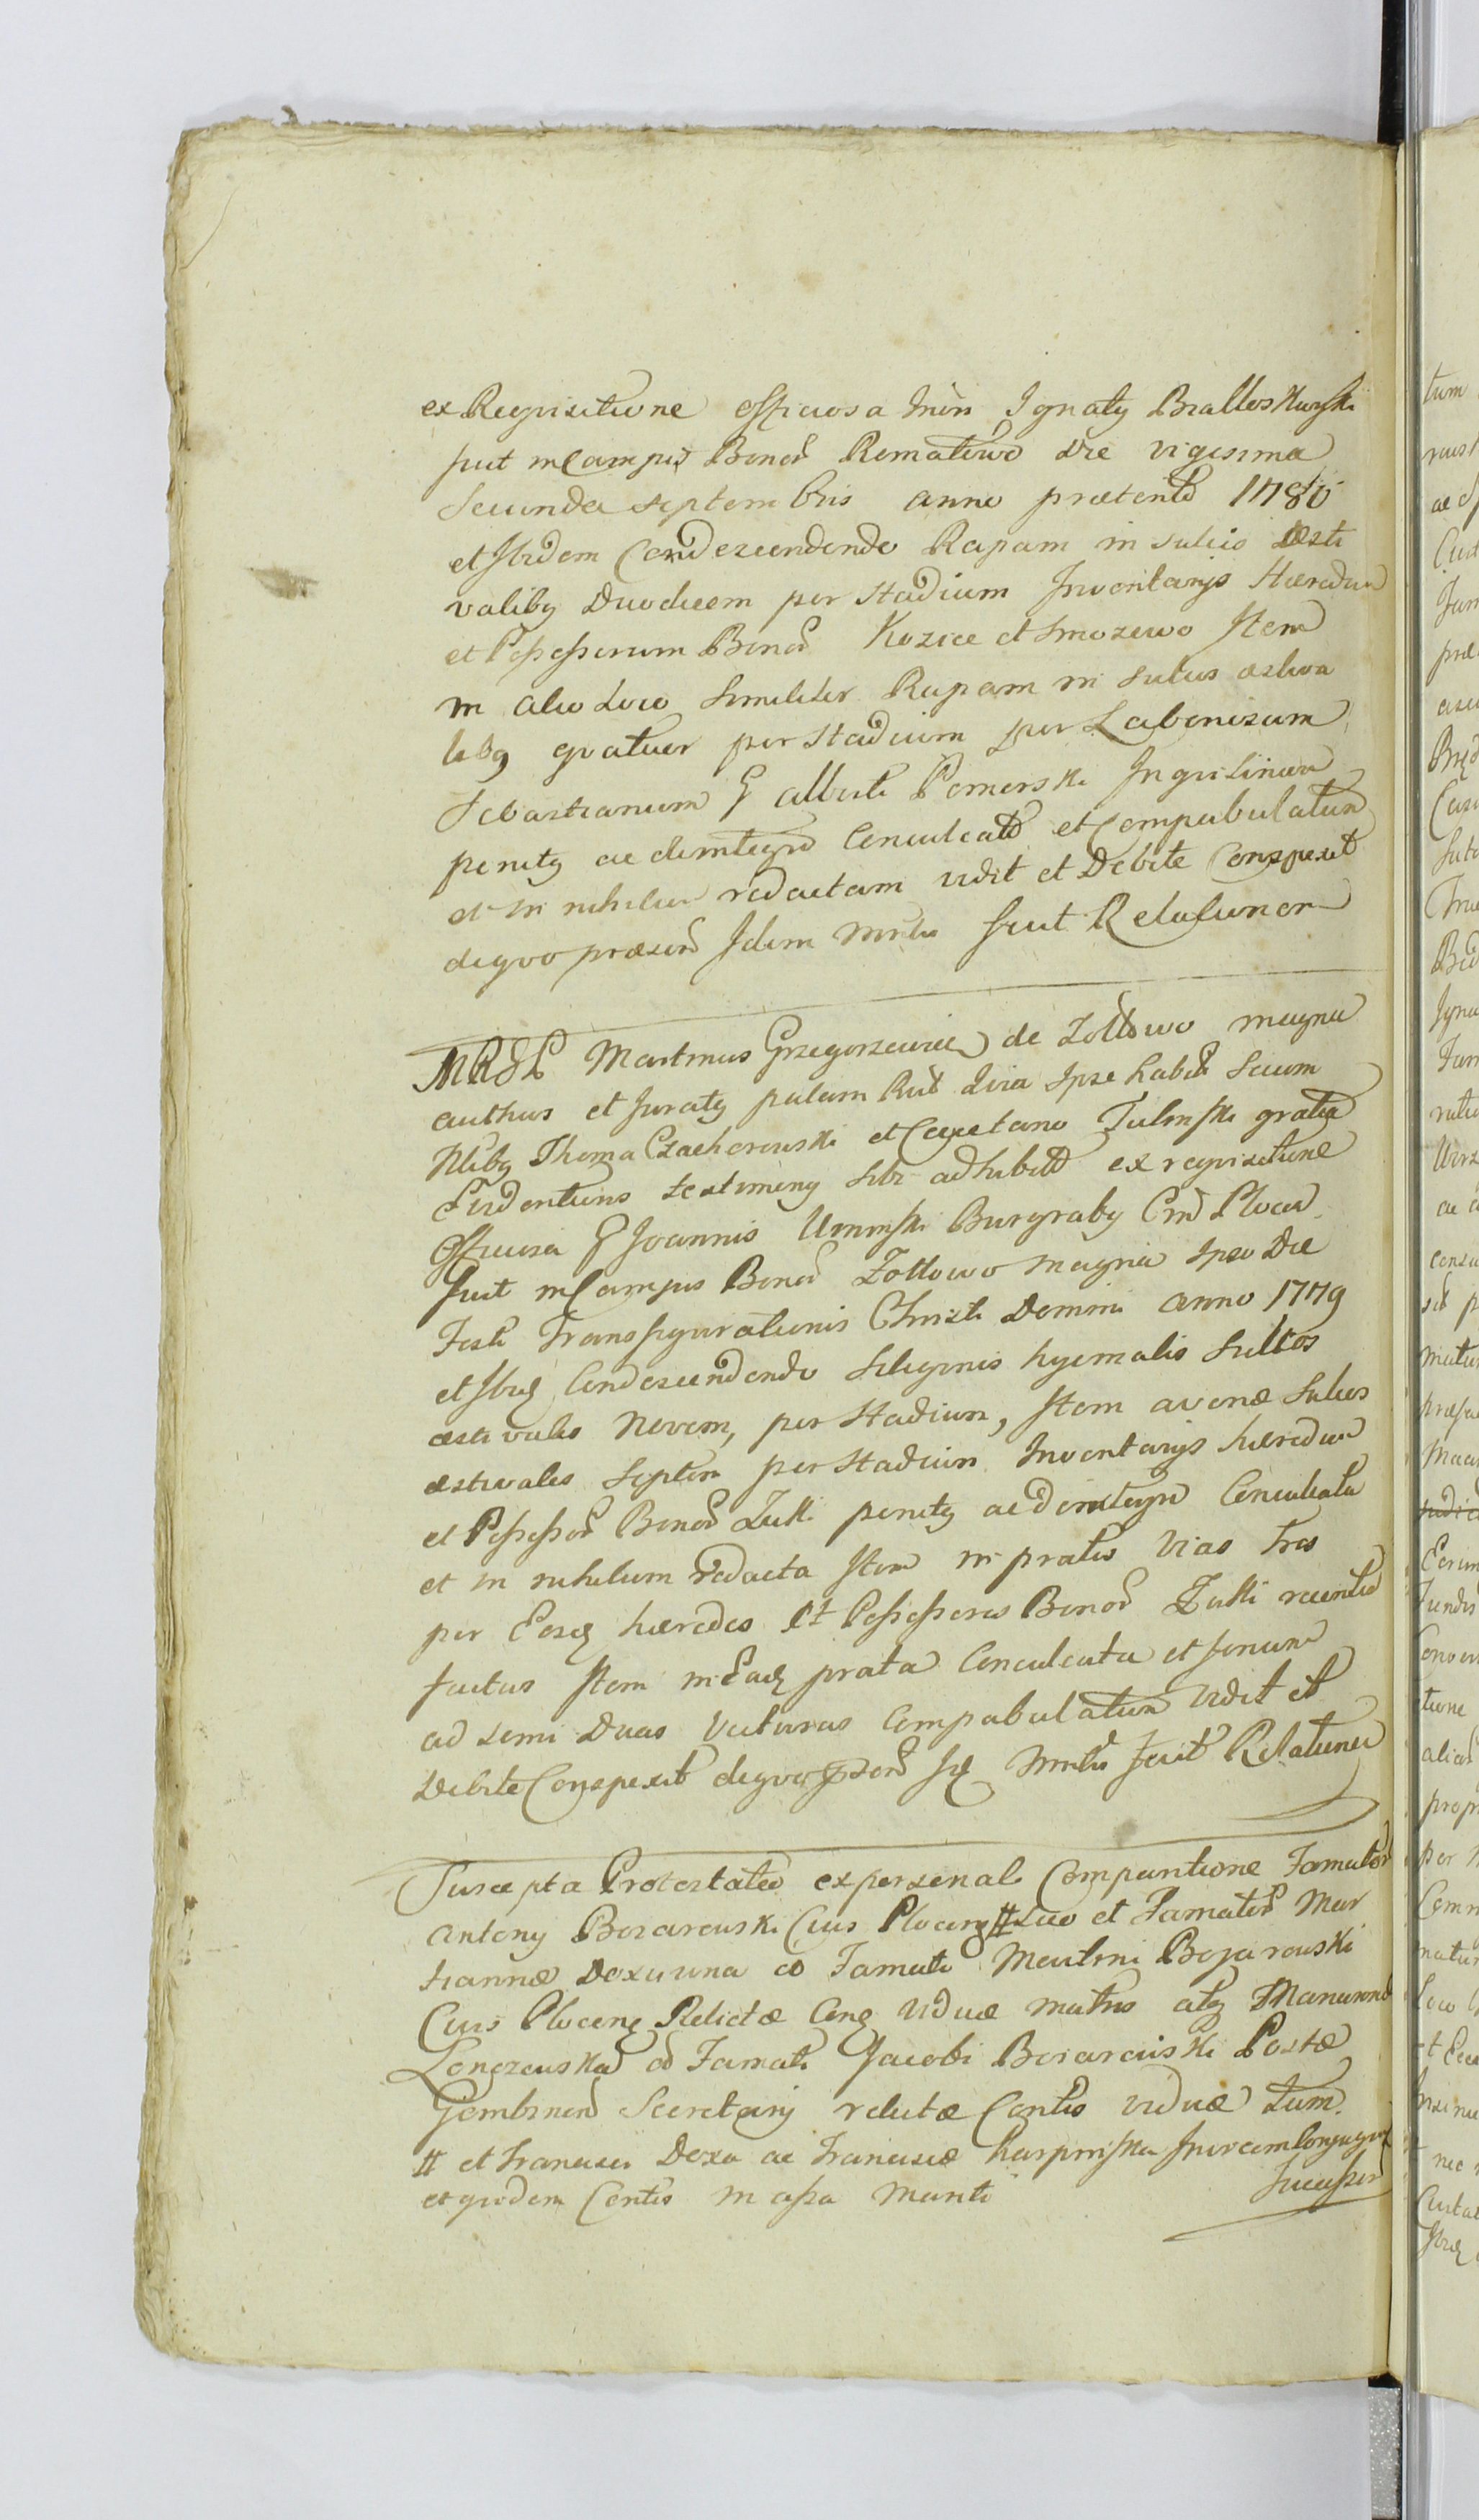 ex Reqvisitione officiosa Ignaty Bialloskurski
fuit in Campis Bonor Rematowo die vigesima
Secunda septembris anno praetento 1780
et Ibidem Condescendendo Rapam in sulcis aesti
valibg Duodecem per stadium Inventarys Haeredum
et Possessorum Bonor Kozice et Smoszewo Item
in alio Loco Similiter Rapam in sulcis aestiva
libg qvatuor per stadium per Laboriosum
Sebastianum G alberti Pomorski Inqvilinum
penitg ac demtegro Conculcatā et Compabulatam
et in nihilum redactam vidit et Debite Conspexit
deqvo praesen Idem Mnlis fecit Relationem
Martinus Grzegorzewicz de Zottowo magna
authus et Juratg palam Rut Liia Ipse habens Secum
Nlibg Thoma Czachorowski et Cajetano Tulinski gratia
Evidentioris testimony sibi adhibitis ex reqvisitione
Officiosa G Joannis Uminski Burgraby Cmd Plocen
fuit in Campis Bonor Zottowo magna Ipso Die
Festi Transfigurationis Christi Domini anno 1779
et Ibidq Condescendendo Siliginis hyemalis Sulcos
aestivales Novem, per stadium, Item avenae Sulcos
aestivales Septem per stadium Inventarys haeredum
et Possessor Bonor Zulki penitg ac demtegro Conculcata
et in nihilum redacta Item in pratis vias tres
per Eosq haeredes et Possessores Bonor Zulki recenter
factas Item in Eadq prata Conculcata et fenum
ad semi Duas Vecturas Compabulatum vidit et
Debite Conspexit deqvo Idq Mnlis fecit Relationem
Suscepta Protestatio ex personali Comparitione Famator
Antony Bozarowski Civis Ploceng # suo et Famator Mar
tianna Doxiuwna ... Famati Martini Bojarowski
Civis Plocen Relictae viduae matris atq Marianna
Lonczewska ... Famati Jacobi Bojarowski Postae
Gombinen Secretary relictae Contis viduae tum
# et Francisci Doxa ac Franciscae Karpinska Invicem Conjugum
et qvidem Contis in assa Mariti
Succesor